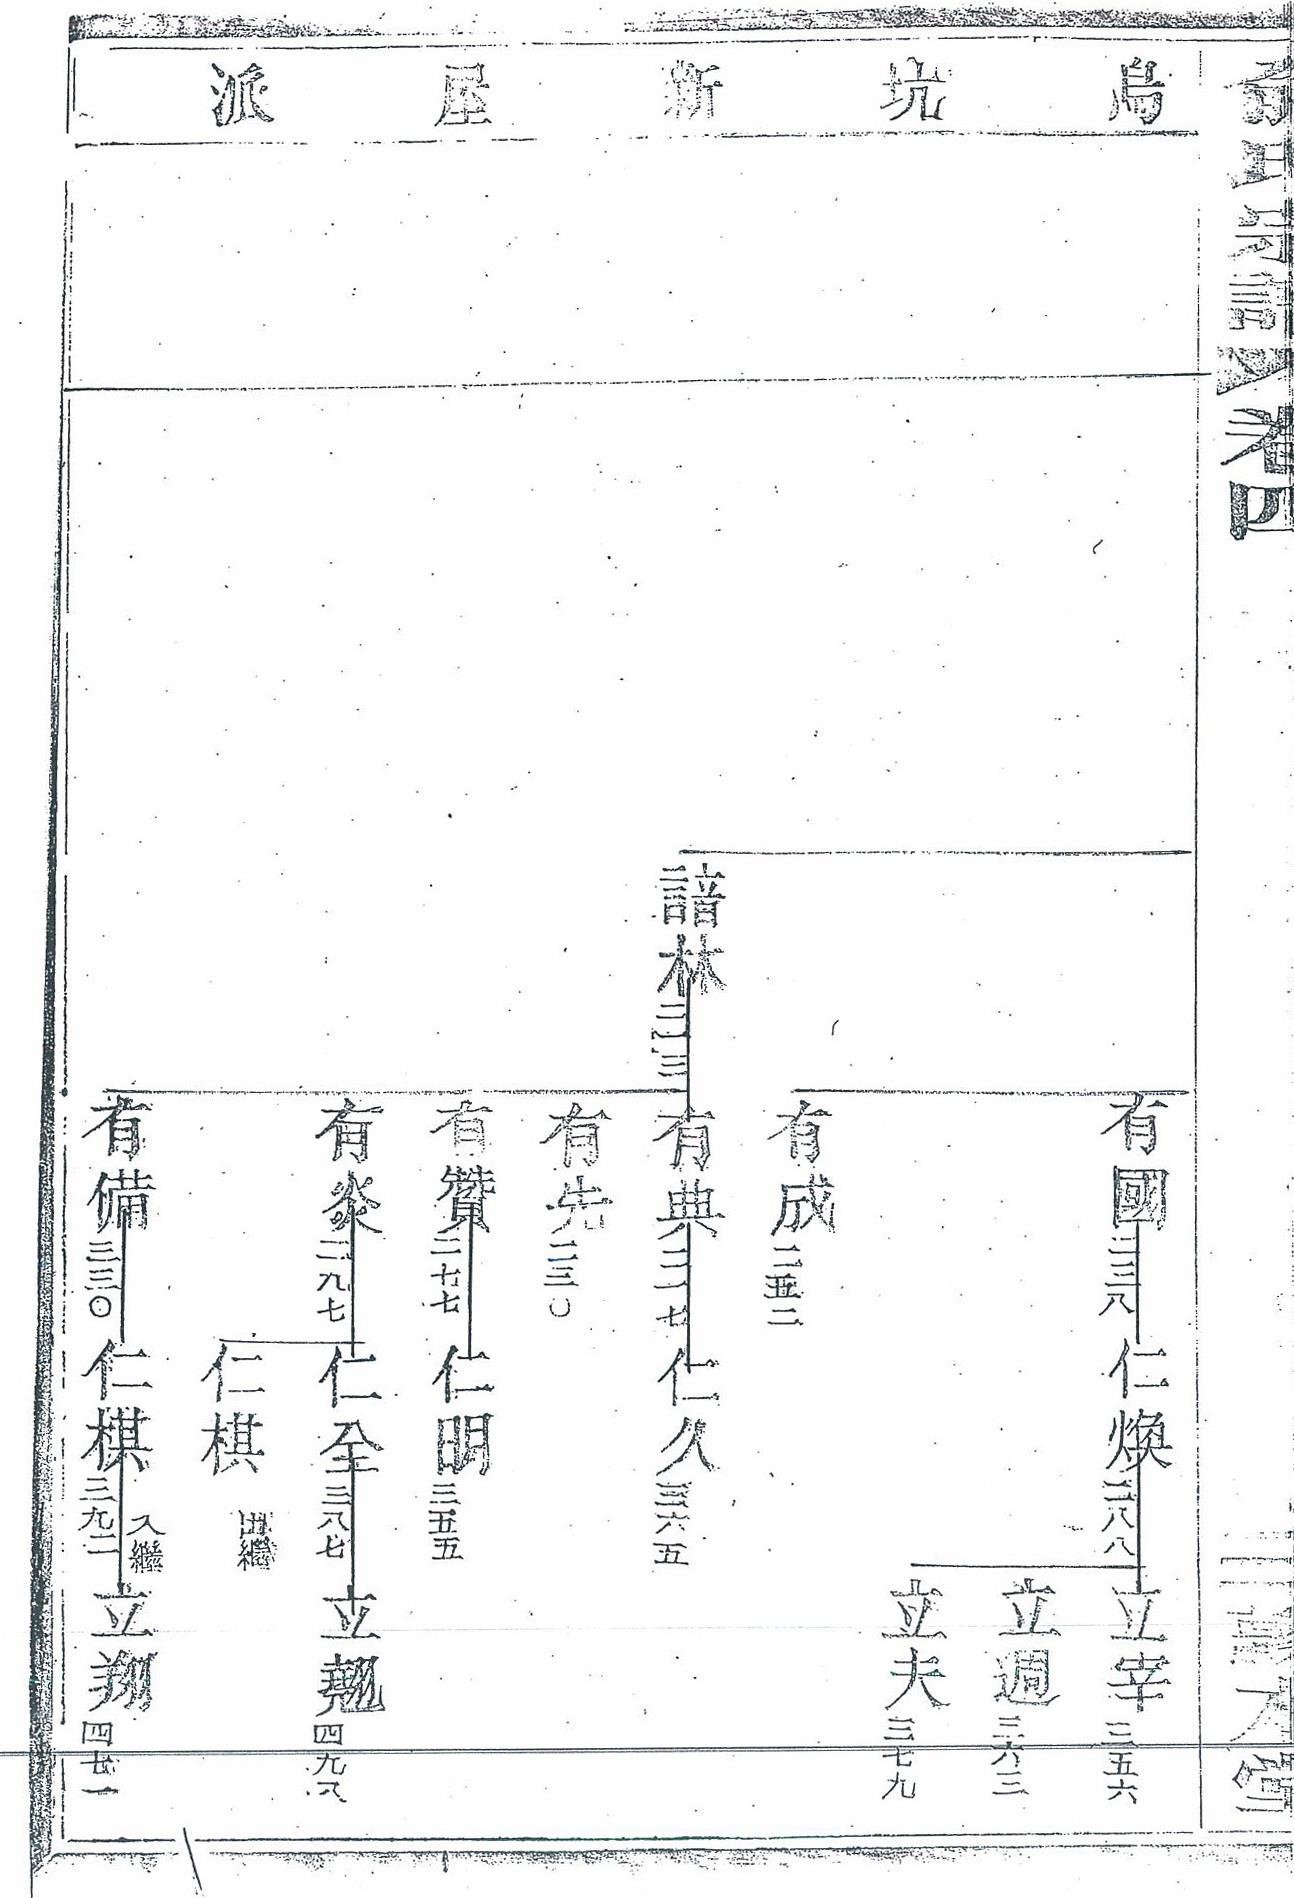 卷四
烏坑新屋派
諳林
有國 二三八
有成 二五二
有典 二一七
有先 二三〇
有贊 二七七
有炎 二九七
有備 三三〇
仁煥 二八八
仁久 三六五
仁明 三五五
仁全 三八七
仁棋 出繼
仁棋 三九二 入繼
立宰 三五六
立週 三六三
立夫 三七九
立翹 四九八
立翔 四七一